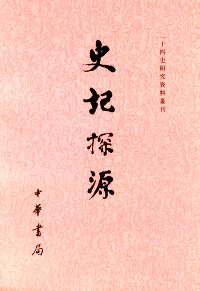 二十四史研究資料叢刊
史記探源
中華書局